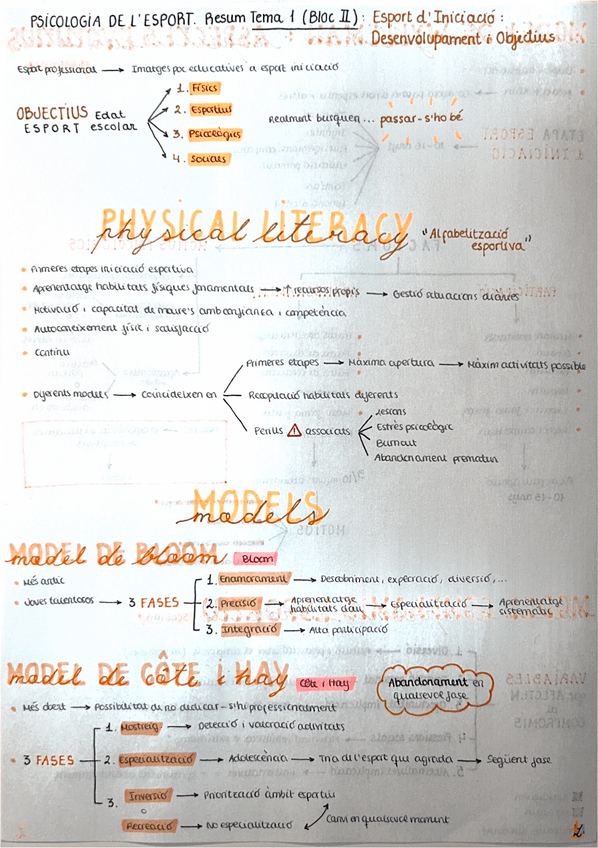 PSICOLOGIA DE L'ESPORT. Resum Tema 1 (Bloc II): Esport d'Iniciació:
Desenvolupament i Objectius
Esport professional → Imatges poc educatives a esport iniciació
OBJECTIUS Edat
ESPORT escolar
1. Físics
2. Esportius
3. Psicològics
4. Socials
Realment busquen... passar-s'ho bé
PHYSICAL LITERACY
physical literacy "Alfabetització
esportiva"
Primeres etapes iniciació esportiva
Aprenentatge habilitats físiques fonamentals → ↑ recursos propis → Gestió situacions diàries
Motivació i capacitat de moure's amb confiança i competència
Autoconeixement físic i satisfacció
Continu
Diferents models → Coincideixen en
Primeres etapes → Màxima apertura → Màxim activitats possible
Recopilació habilitats diferents
Perills ⚠ associats
Lesions
Estrès psicològic
Burnout
Abandonament prematur
MODELS
models
MODEL DE BLOOM
model de bloom Bloom
Més antic
Joves talentosos → 3 FASES
1. Enamorament → Descobriment, exploració, diversió,...
2. Precisió → Aprenentatge habilitats clau → Especialització → Aprenentatge sistemàtic
3. Integració → Alta participació
MODEL DE CÔTE I HAY
model de côte i hay Côte i Hay
Abandonament en
qualsevol fase
Més obert → Possibilitat de no dedicar-s'hi professionalment
3 FASES
1. Mostreig → Detecció i valoració activitats
2. Especialització → Adolescència → Tria de l'esport que agrada → Següent fase
3. Inversió → Priorització àmbit esportiu
o
Recreació → No especialització
Canvi en qualsevol moment